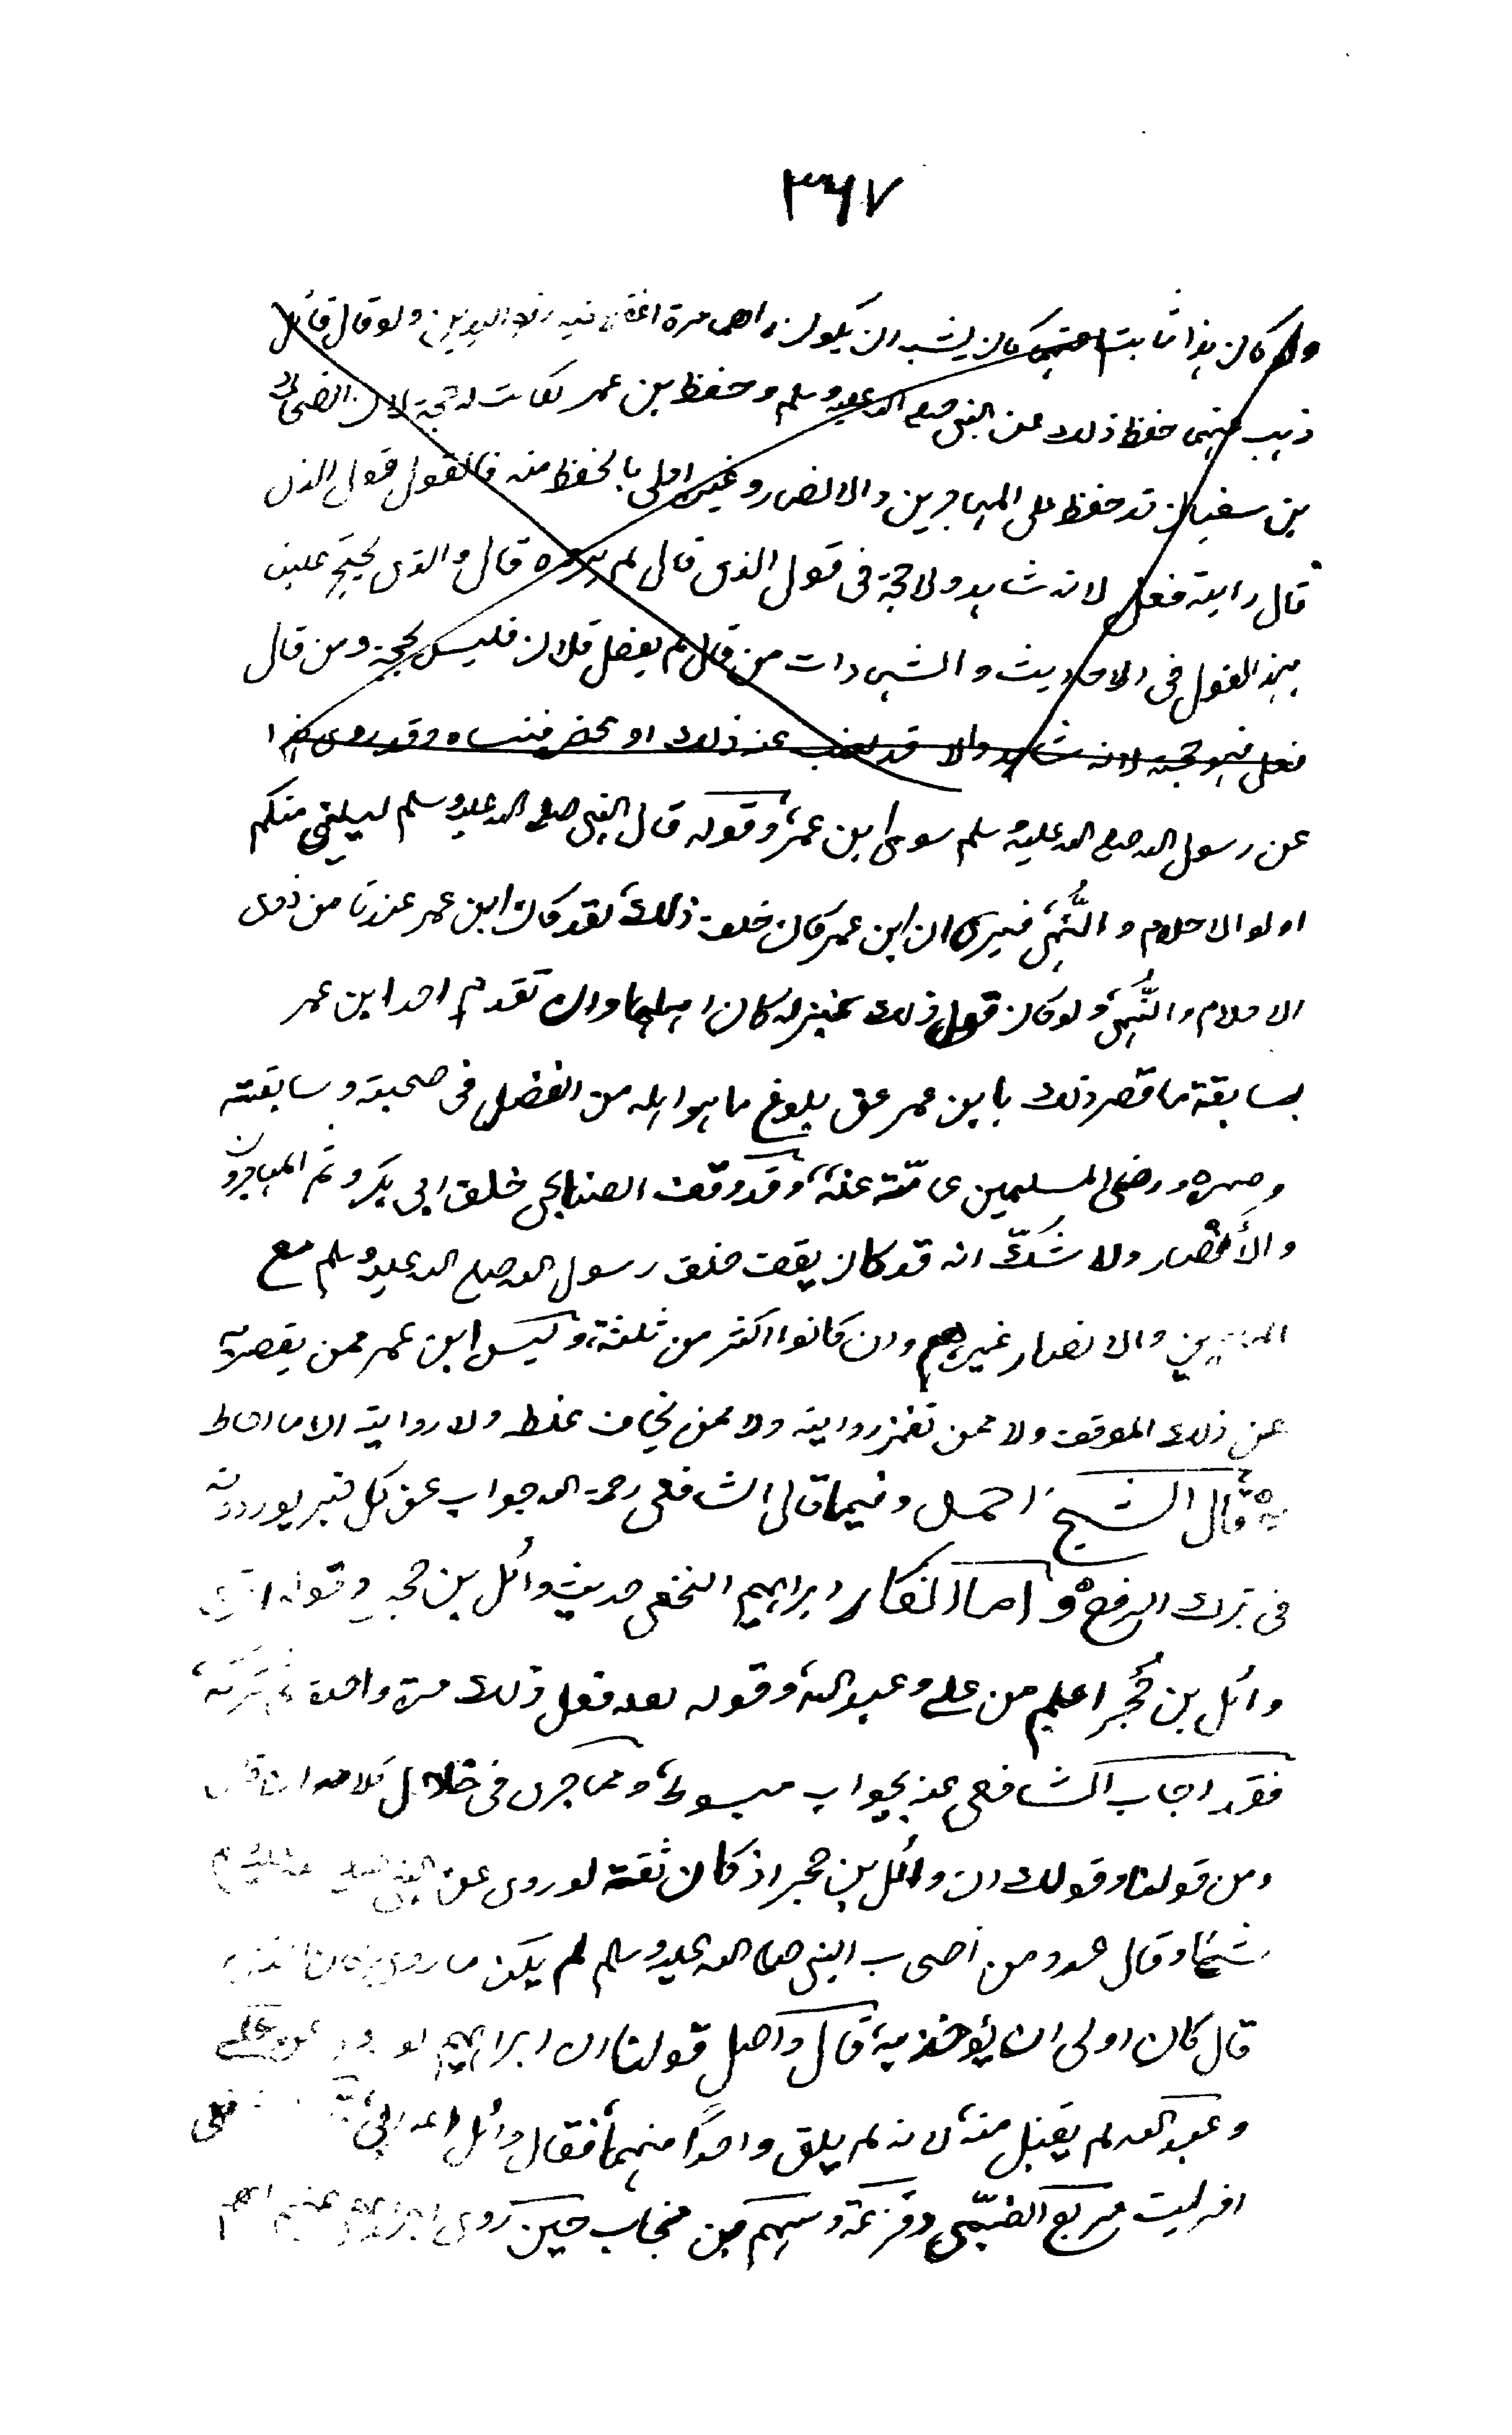 ٣٦٧
ولو كان هذا ثابتا كان يشبه ان يكون راهم مرة اغفل فيه رفع اليدين ولو قال قائل
ذهب عنهم حفظ ذلك عن النبي صلى الله عليه وسلم وحفظ بن عمر لكانت له حجة لان الضحاك
بن سفيان قد حفظ على المهاجرين والانصار وغيره اولى بالحفظ منه فالقول قول الذى
قال رايته فعل لانه شاهد ولا حجة في قول الذى قال لم يره قال والذى يحتج علينا
بهذا القول في الاحاديث والشهادات من قال لم يفعل فلان فليس بحجة ومن قال
فعل فهو حجة لانه شاهد والا قد يغيب عنه ذلك او يحضر فينساه وقد روى هذا
عن رسول الله صلى الله عليه وسلم سوى ابن عمر، وقوله قال النبي صلى الله عليه وسلم ليليني منكم
اولو الاحلام والنُّهى فيرى ان ابن عمر كان خلف ذلك، لقد كان ابن عمر عندنا من ذوى
الاحلام والنُّهى ولو كان فوق ذلك بمنزلة كان اهلها وان تقدم احد ابن عمر
بسابقة ما قصر ذلك بابن عمر عن بلوغ ما هو اهله من الفضل في صحبته وسابقته
وصهره ورضى المسلمين عامّة عنه، وقد وقف الصنابحى خلف ابى بكر وثم المهاجرون
والأنصار ولا شكّ انه قد كان يقف خلف رسول الله صلى الله عليه وسلم مع
والانصار غيرهم وان كانوا اكثر من ثلثة، وليس ابن عمر ممن يقصر به
عن ذلك الموقف ولا ممن تغمز روايته ولا ممن يخاف غلطه ولا روايته الا ما احاط
به، قال الشيخ احمد وفيما قال الشافعى رحمه الله جواب عن كل خبر يوردونه
في ترك الرفع، واما انكار ابراهيم النخعى حديث وائل بن حجر وقوله اترى
وائل بن حُجر اعلم من على وعبد الله، وقوله لعله فعل ذلك مرة واحدة ثم تركه،
فقد اجاب الشافعى عنه بجواب مبسوط، ومما جرى في خلال كلامه ان قال
ومن قولنا وقولك ان وائل بن حجر اذ كان ثقة لو روى عن النبي صلى الله عليه وسلم
شيئا وقال عدد من اصحاب النبي صلى الله عليه وسلم لم يكن ما روى كان الذى
قال كان اولى ان يؤخذ به، قال واصل قولنا ان ابراهيم لو روى عن على
وعبد الله لم يقبل منه، لانه لم يلق واحدًا منهما، فقال وائل اعرابى،
افرايت قرثع الضبّى وقزعة وسهم بن منجاب حين روى ابراهيم عنهم اهم